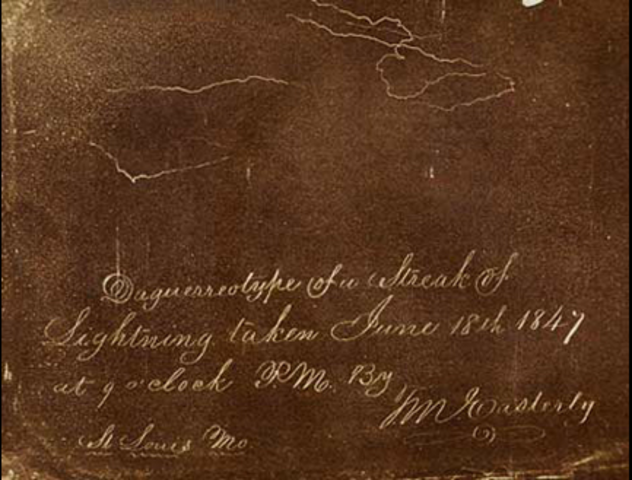 Daguerreotype of a Streak of
Lightning taken June 18th 1847
at 9 o'clock P.M. By
T M Easterly
St Louis Mo